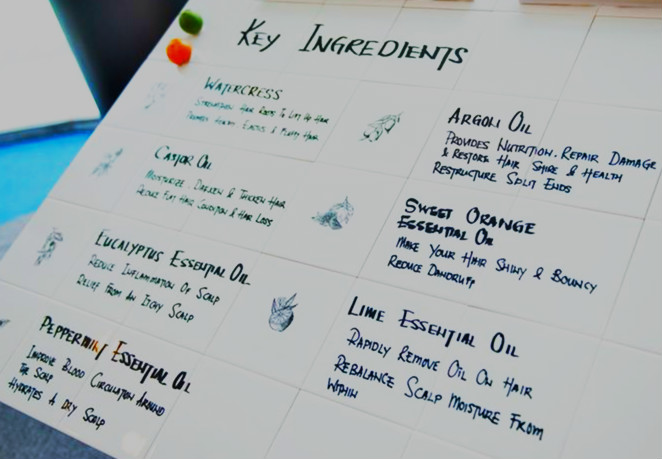 Key Ingredients
Watercress
Strengthen Hair Roots To Lift Up Hair
Promen Healthy Elastic & Fluffy Hair
Castor Oil
Moisturize, Darken & Thicken Hair
Reduce Flat Hair Condition & Hair Loss
Eucalyptus Essential Oil
Reduce Inflammation Of Scalp
Relief From An Itchy Scalp
Peppermint Essential Oil
Improve Blood Circulation Around
The Scalp
Hydrates A Dry Scalp
Argon Oil
Provides Nutrition. Repair Damage
& Restore Hair Shine & Health
Restructure Split Ends
Sweet Orange
Essential Oil
Make Your Hair Shiny & Bouncy
Reduce Dandruff
Lime Essential Oil
Rapidly Remove Oil On Hair
Rebalance Scalp Moisture From
Within